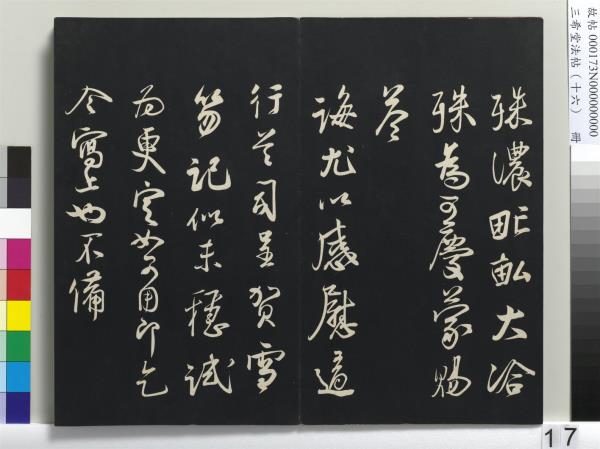 殊濃畎畝大洽
殊為可慶蒙賜
答
誨尤以感慰適
行首司呈賀雪
笏記似未穩試
為更定如可用即乞
令寫上也不備
故帖 000173N000000000
三希堂法帖（十六） 冊
17